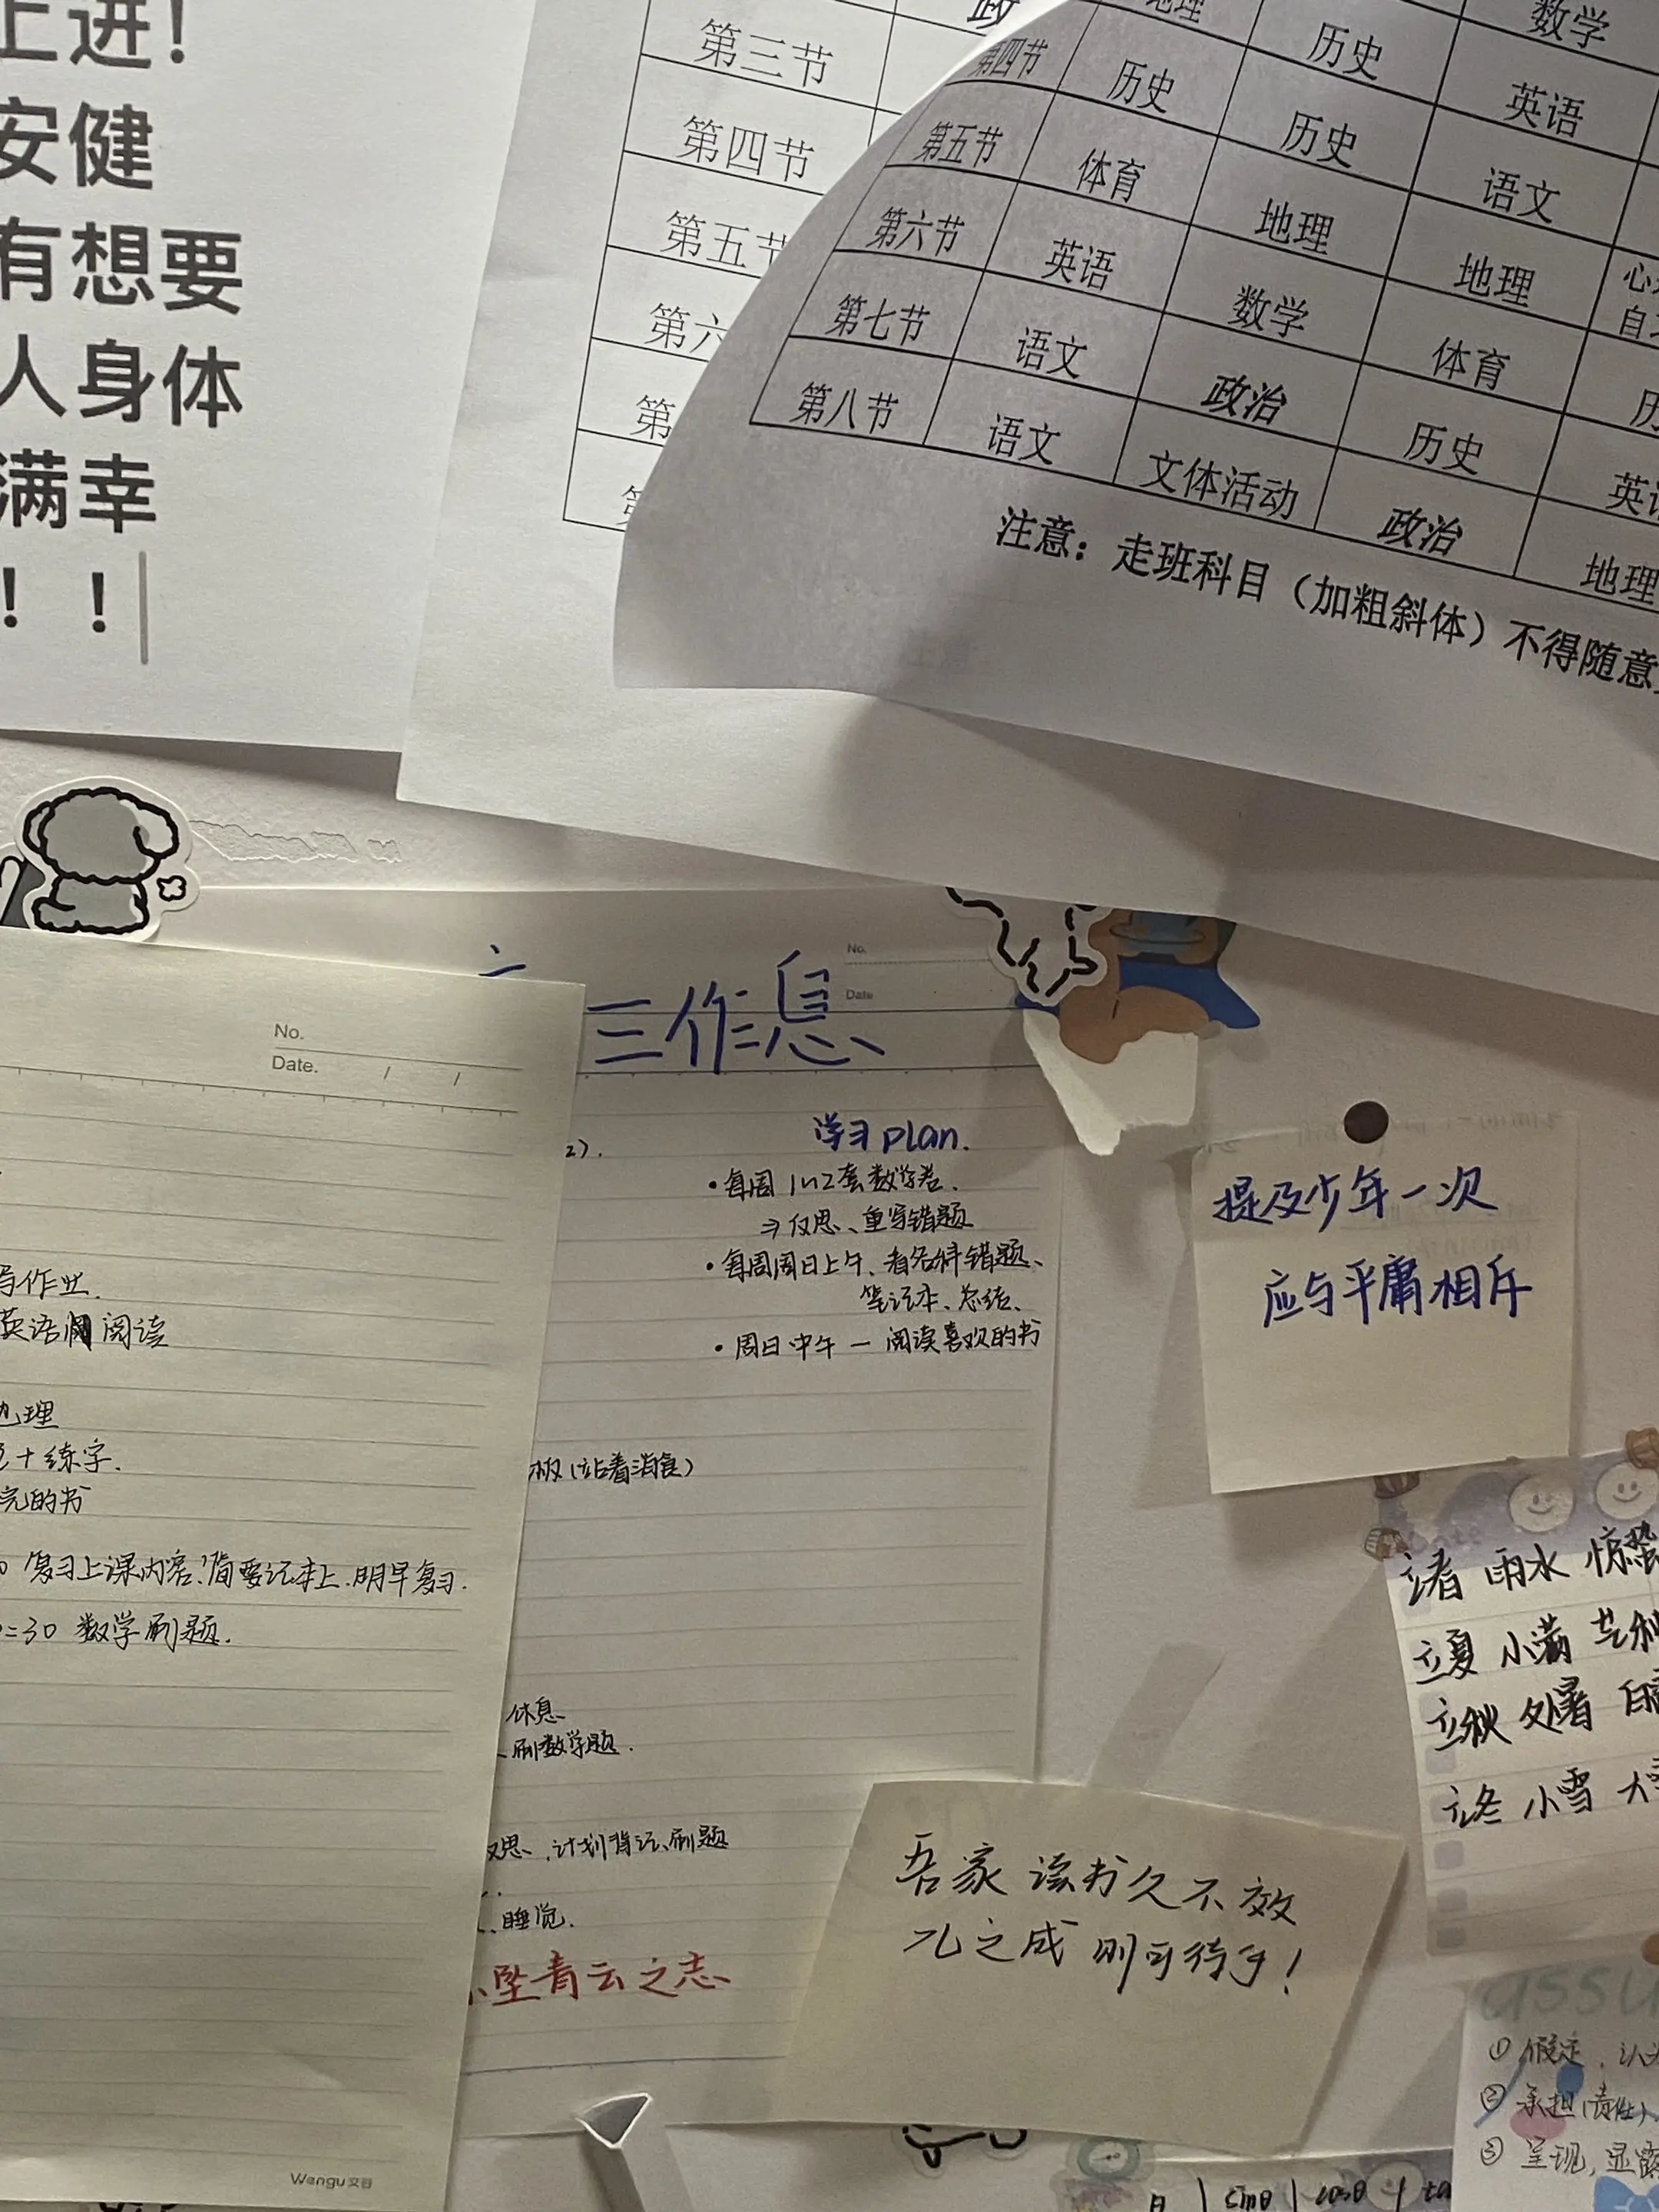 上进！
安健
有想要
人身体
满幸
！！
第三节
第四节
第五节
第六
第
政
地理 历史 数学
第四节 历史 历史 英语
第五节 体育 地理 语文
第六节 英语 数学 地理
第七节 语文 政治 体育
第八节 语文 文体活动 历史 英语
政治 地理
注意：走班科目（加粗斜体）不得随意
No.
Date
三作息
2).
学习plan.
• 每周1~2套数学卷.
⇒反思、重写错题
• 每周周日上午、看各科错题、
笔记本、总结、
• 周日中午 — 阅读喜欢的书
(站着消食)
休息
刷数学题.
思、计划背记、刷题
睡觉.
坠青云之志
No.
Date. / /
写作业.
英语 阅读
地理
+练字.
完的书
复习上课内容,简要记本上.明早复习.
:30 数学刷题.
Wengu文谷
提及少年一次
应与平庸相斥
立春 雨水 惊蛰
立夏 小满 芒种
立秋 处暑 白露
立冬 小雪 大雪
吾家读书久不效
儿之成则可待乎！
assu
① 假定、认为
② 承担(责任)
③ 呈现,显露
θ sinθ cosθ ta